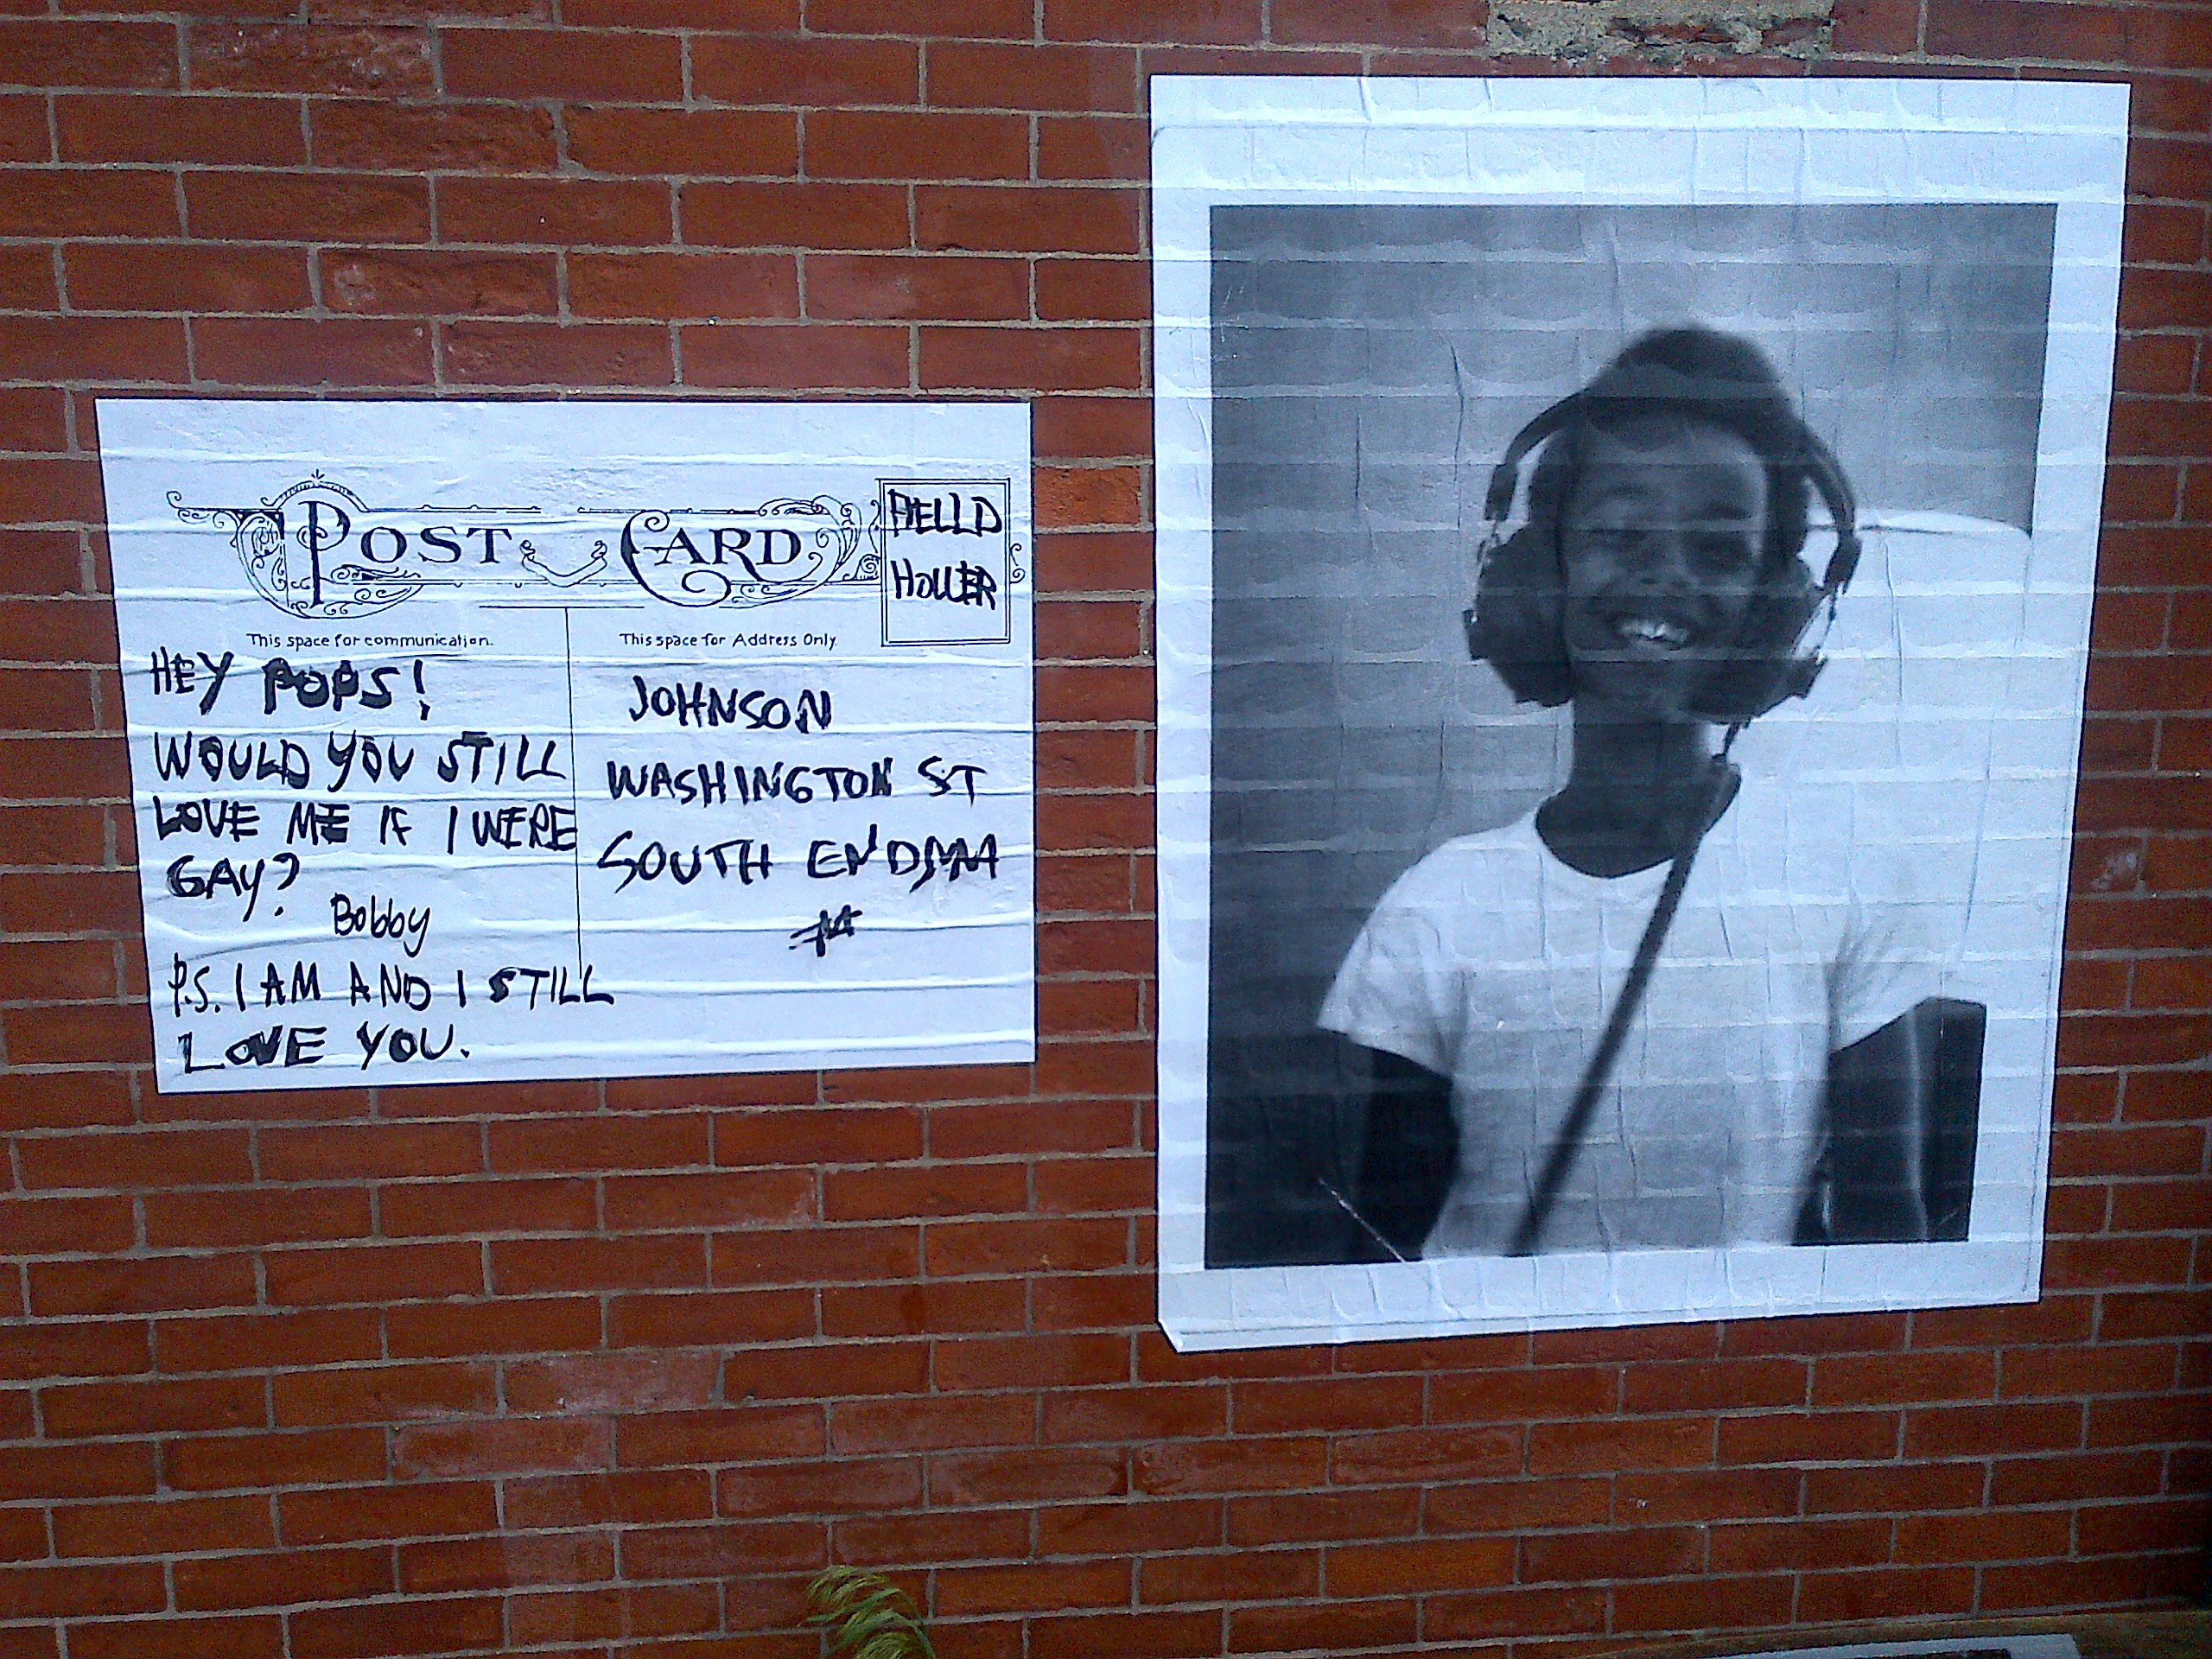 POST CARD
FIELD
HOLLER
This space for communication.
This space for Address Only.
HEY POPS!
WOULD YOU STILL
LOVE ME IF I WERE
GAY?
Bobby
P.S. I AM AND I STILL
LOVE YOU.
JOHNSON
WASHINGTON ST
SOUTH END, MA